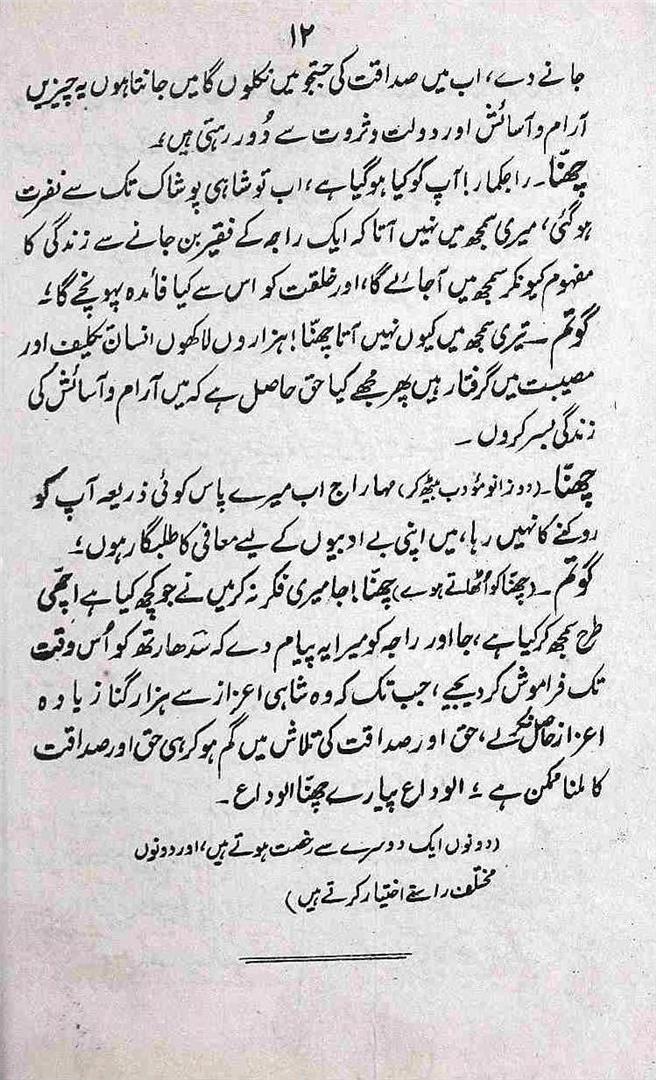 ۱۲
جانے دے، اب میں صداقت کی جستجو میں نکلوں گا میں جانتا ہوں یہ چیزیں
آرام و آسائش اور دولت و ثروت سے دُور رہتی ہیں؛
چھنّا۔ راجکمار! آپ کو کیا ہو گیا ہے، اب تو شاہی پوشاک تک سے نفرت
ہو گئی، میری سمجھ میں نہیں آتا کہ ایک راجہ کے فقیر بن جانے سے زندگی کا
مفہوم کیونکر سمجھ میں آجائے گا، اور خلقت کو اس سے کیا فائدہ پہونچے گا؛
گوتم ۔ تیری سمجھ میں کیوں نہیں آتا چھنّا! ہزاروں لاکھوں انسان تکلیف اور
مصیبت میں گرفتار ہیں پھر مجھے کیا حق حاصل ہے کہ میں آرام و آسائش کی
زندگی بسر کروں ۔
چھنّا۔ (دو زانو مؤدب بیٹھ کر) مہاراج اب میرے پاس کوئی ذریعہ آپ کو
روکنے کا نہیں رہا، میں اپنی بے ادبیوں کے لیے معافی کا طلبگار ہوں؛
گوتم ۔ (چھنّا کو اُٹھاتے ہوے) چھنّا! جا میری فکر نہ کر میں نے جو کچھ کیا ہے اچھّی
طرح سمجھ کر کیا ہے، جا اور راجہ کو میرا یہ پیام دے کہ سَدھارتھ کو اُس وقت
تک فراموش کر دیجیے، جب تک کہ وہ شاہی اعزاز سے ہزار گنا زیادہ
اعزاز حاصل نہ کرلے، حق اور صداقت کی تلاش میں گم ہو کر ہی حق اور صداقت
کا ملنا ممکن ہے؛ الوداع پیارے چھنّا الوداع ۔
(دونوں ایک دوسرے سے رخصت ہوتے ہیں، اور دونوں
مختلف راستے اختیار کرتے ہیں)